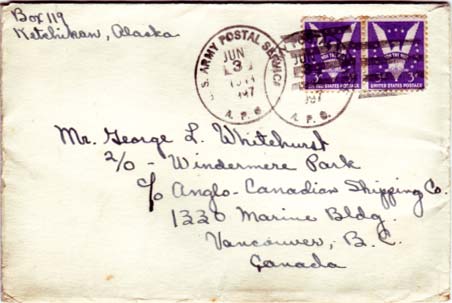 Box 119
Ketchikan, Alaska
U.S. ARMY POSTAL SERVICE
JUN
3
197
A. P. O.
197
A. P. O.
3¢
UNITED STATES POSTAGE
3¢
UNITED STATES POSTAGE
Mr. George L. Whitehurst
2/0 - Windermere Park
c/o Anglo-Canadian Shipping Co.
1330 Marine Bldg.
Vancouver, B. C.
Canada